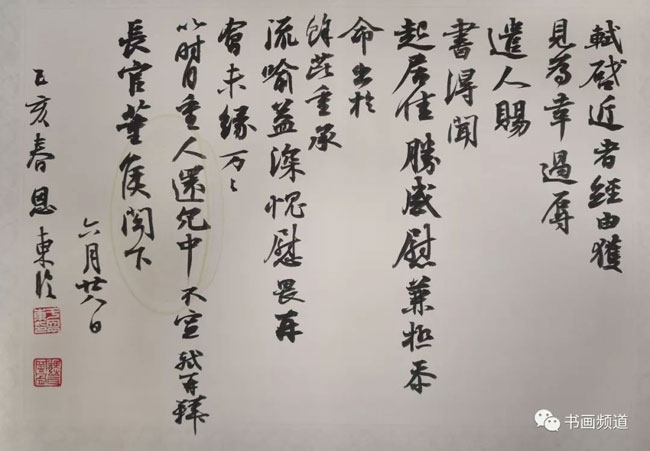 軾啓近者經由獲
見為幸過辱
遣人賜
書得聞
起居佳勝感慰兼極忝
命出於
餘芘重承
流喻益深愧慰畏再
會未緣万々
以时自重人還冗中不宣軾再拜
長官董侯閣下
六月廿八日
乙亥春恩東临
书画频道